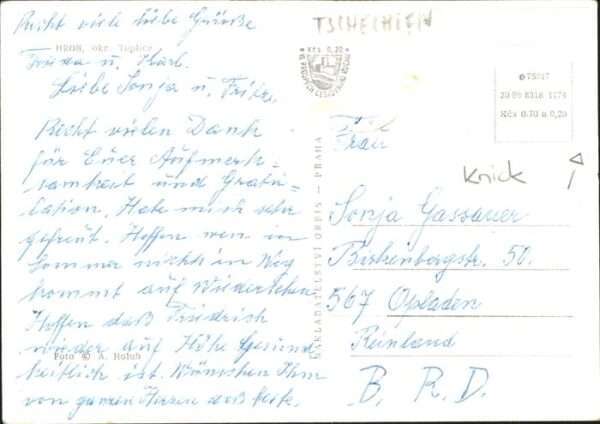 Recht viele liebe Grüße
TSCHECHIEN
HROB, okr. Teplice
Frieda u. Karl.
Liebe Sonja u. Fritz.
Kčs 0,20
75017
20 09 8318 1174
Kčs 0.70 a 0,20
Recht vielen Dank
für Euer Aufmerk-
samkeit und Gratu-
lation. Habe mich sehr
gefreut. Hoffen wen im
Sommer nichts in Weg
kommt auf Wiedersehen
Hoffen daß Friedrich
wieder auf Höhe Gesund
heitlich ist. Wünschen Ihm
von ganzen Herzen daß beste.
Foto © A. Holub
NAKLADATELSTVÍ ORBIS – PRAHA
Frau
Knick
Sonja Gassauer
Birkenbergstr. 50.
567 Opladen
Reinland
B. R. D.